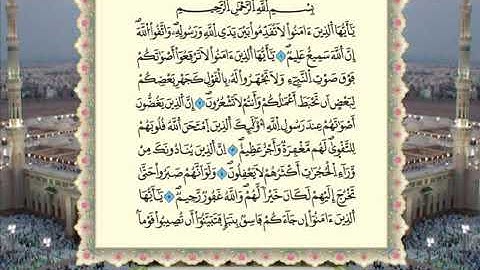 بِسْمِ اللَّهِ الرَّحْمَٰنِ الرَّحِيمِ
يَا أَيُّهَا الَّذِينَ ءَامَنُوا لَا تُقَدِّمُوا بَيْنَ يَدَيِ اللَّهِ وَرَسُولِهِ وَاتَّقُوا اللَّهَ
إِنَّ اللَّهَ سَمِيعٌ عَلِيمٌ ١ يَا أَيُّهَا الَّذِينَ ءَامَنُوا لَا تَرْفَعُوا أَصْوَاتَكُمْ
فَوْقَ صَوْتِ النَّبِيِّ وَلَا تَجْهَرُوا لَهُ بِالْقَوْلِ كَجَهْرِ بَعْضِكُمْ
لِبَعْضٍ أَن تَحْبَطَ أَعْمَالُكُمْ وَأَنتُمْ لَا تَشْعُرُونَ ٢ إِنَّ الَّذِينَ يَغُضُّونَ
أَصْوَاتَهُمْ عِندَ رَسُولِ اللَّهِ أُولَٰئِكَ الَّذِينَ امْتَحَنَ اللَّهُ قُلُوبَهُمْ
لِلتَّقْوَىٰ لَهُم مَّغْفِرَةٌ وَأَجْرٌ عَظِيمٌ ٣ إِنَّ الَّذِينَ يُنَادُونَكَ مِن
وَرَاءِ الْحُجُرَاتِ أَكْثَرُهُمْ لَا يَعْقِلُونَ ٤ وَلَوْ أَنَّهُمْ صَبَرُوا حَتَّىٰ
تَخْرُجَ إِلَيْهِمْ لَكَانَ خَيْرًا لَّهُمْ وَاللَّهُ غَفُورٌ رَّحِيمٌ ٥ يَا أَيُّهَا
الَّذِينَ ءَامَنُوا إِن جَاءَكُمْ فَاسِقٌ بِنَبَإٍ فَتَبَيَّنُوا أَن تُصِيبُوا قَوْمًا